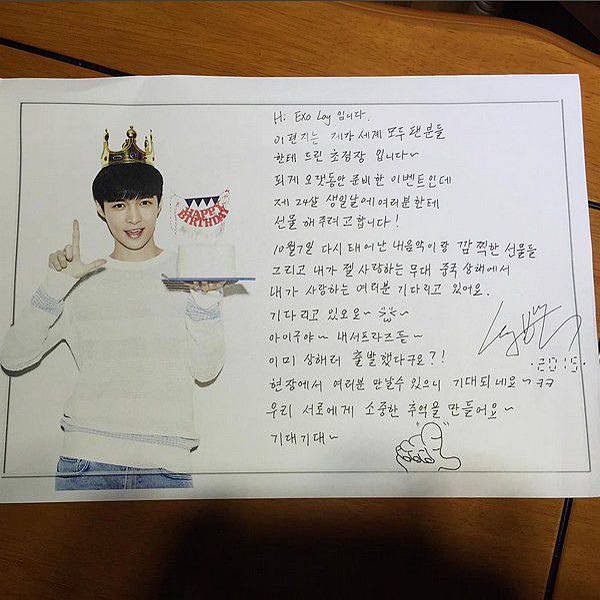 HAPPY
BIRTHDAY
Hi Exo Lay 입니다.
이편지는 제가 세계 모두 팬분들
한테 드린 초정장 입니다~
되게 오랫동안 준비한 이벤트인데
제 24살 생일날에 여러분한테
선물 해주려고합니다!
10월7일 다시 태어난 내음악이랑 깜찍한 선물들
그리고 내가 젤 사랑하는 무대 중국 상해에서
내가 사랑하는 여러분 기다리고 있어요.
기다리고 있오요~
아이구야~ 내서프라즈든~
이미 상해러 출발했다구요?!
현장에서 여러분 만날수 있으니 기대되네요~ㅋㅋ
우리 서로에게 소중한 추억을 만들어요~
기대기대~
Lay
2015.